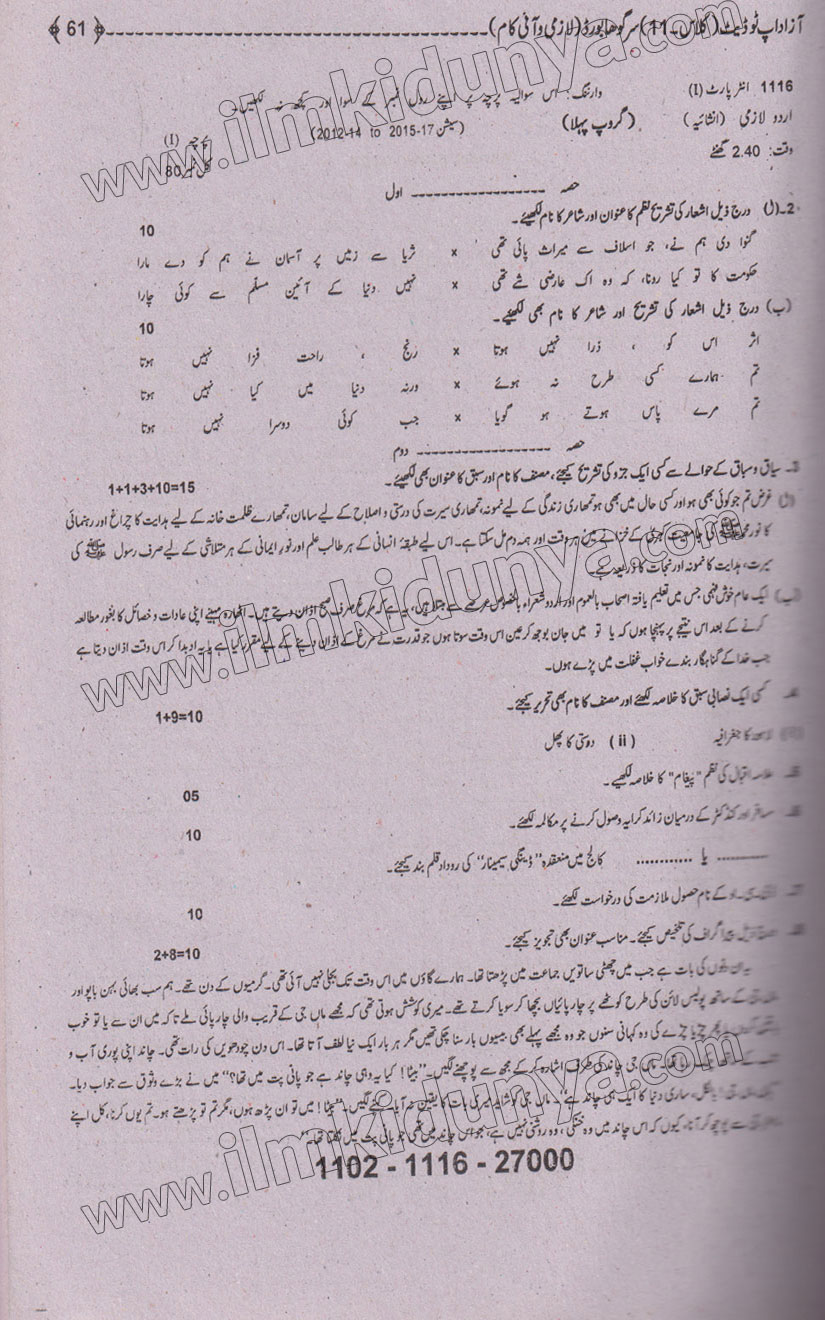 آزاد اپ ٹو ڈیٹ (کلاس۔11) سرگودھا بورڈ (لازمی و آئی کام) ﴿ 61 ﴾
1116 انٹر پارٹ (I) وارننگ: اس سوالیہ پرچہ پر اپنے رول نمبر کے سوا اور کچھ نہ لکھیں۔
اردو لازمی (انشائیہ) (گروپ پہلا) (سیشن 17-2015 to 2012-14) پرچہ (I)
وقت: 2.40 گھنٹے کل نمبر 80
حصہ ------------------ اول
2۔(ا) درج ذیل اشعار کی تشریح نظم کا عنوان اور شاعر کا نام لکھیئے۔ 10
گنوا دی ہم نے، جو اسلاف سے میراث پائی تھی x ثریا سے زمیں پر آسمان نے ہم کو دے مارا
حکومت کا تو کیا رونا، کہ وہ اک عارضی شے تھی x نہیں دنیا کے آئین مسلّم سے کوئی چارا
(ب) درج ذیل اشعار کی تشریح اور شاعر کا نام بھی لکھیئے۔ 10
اثر اس کو ، ذرا نہیں ہوتا x رنج ، راحت فزا نہیں ہوتا
تم ہمارے کسی طرح نہ ہوئے x ورنہ دنیا میں کیا نہیں ہوتا
تم مرے پاس ہوتے ہو گویا x جب کوئی دوسرا نہیں ہوتا
حصہ ------------------ دوم
3۔ سیاق و سباق کے حوالے سے کسی ایک جزو کی تشریح کیجئے، مصنف کا نام اور سبق کا عنوان بھی لکھیئے۔ 1+1+3+10=15
(ا) غرض تم جو کوئی بھی ہو اور کسی حال میں بھی ہو تمہاری زندگی کے لیے نمونہ، تمہاری سیرت کی درستی و اصلاح کے لیے سامان، تمہارے ظلمت خانہ کے لیے ہدایت کا چراغ اور رہنمائی
کا نور محمدﷺ کی جامعیت کبریٰ کے خزانے میں ہر وقت اور ہمہ دم مل سکتا ہے۔ اس لیے طبقۂ انسانی کے ہر طالب علم اور نور ایمانی کے ہر متلاشی کے لیے صرف رسول ﷺ کی
سیرت، ہدایت کا نمونہ اور نجات کا ذریعہ ہے۔
(ب) ایک عام خوش فہمی جس میں تعلیم یافتہ اصحاب بالعموم اور اردو شعراء بالخصوص عرصے سے مبتلا ہیں، یہ ہے کہ مرغ صرف صبح اذان دیتے ہیں۔ اٹھارہ مہینے اپنی عادات و خصائل کا بغور مطالعہ
کرنے کے بعد اس نتیجے پر پہنچا ہوں کہ یا تو میں جان بوجھ کر عین اس وقت سوتا ہوں جو قدرت نے مرغ کے اذان دینے کے لیے مقرر کیا ہے یا یہ ادبدا کر اس وقت اذان دیتا ہے
جب خدا کے گناہگار بندے خواب غفلت میں پڑے ہوں۔
کسی ایک نصابی سبق کا خلاصہ لکھئے اور مصنف کا نام بھی تحریر کیجئے۔ 1+9=10
لاہور کا جغرافیہ (ii) دوستی کا پھل
علامہ اقبال کی نظم "پیغام" کا خلاصہ لکھیے۔ 05
مسافر اور کنڈکٹر کے درمیان زائد کرایہ وصول کرنے پر مکالمہ لکھئے۔ 10
............ یا ............ کالج میں منعقدہ "ڈینگی سیمینار" کی روداد قلم بند کیجئے۔
کے نام حصول ملازمت کی درخواست لکھئے۔ 10
پیراگراف کی تلخیص کیجئے۔ مناسب عنوان بھی تجویز کیجئے۔ 2+8=10
یہ ان دنوں کی بات ہے جب میں چھٹی ساتویں جماعت میں پڑھتا تھا۔ ہمارے گاؤں میں اس وقت تک بجلی نہیں آئی تھی۔ گرمیوں کے دن تھے۔ ہم سب بھائی بہن باپو اور
کے ساتھ پولیس لائن کی طرح کوٹھے پر چارپائیاں بچھا کر سویا کرتے تھے۔ میری کوشش ہوتی تھی کہ مجھے ماں جی کے قریب والی چارپائی ملے تاکہ میں ان سے یا تو خوب
چڑیا چڑے کی وہ کہانی سنوں جو وہ مجھے پہلے بھی بیسیوں بار سنا چکی تھیں مگر ہر بار ایک نیا لطف آتا تھا۔ اس دن چودھویں کی رات تھی۔ چاند اپنی پوری آب و
ماں جی چاند کی طرف اشارہ کر کے مجھ سے پوچھنے لگیں۔ "بیٹا! کیا یہ وہی چاند ہے جو پانی پت میں تھا؟" میں نے بڑے وثوق سے جواب دیا۔
ساری دنیا کا ایک ہی چاند ہے"۔ ماں جی کو شاید میری بات کا یقین نہ آیا۔ کہنے لگیں۔ "بیٹا! میں تو ان پڑھ ہوں، مگر تم تو پڑھتے ہو۔ تم یوں کرنا، کل اپنے
سے پوچھ کر آنا، کیوں کہ اس چاند میں وہ خنکی، وہ روشنی نہیں ہے، جو اس چاند میں تھی جو پانی پت میں نکلتا تھا۔"
1102 - 1116 - 27000
www.ilmkidunya.com
www.ilmkidunya.com
www.ilmkidunya.com